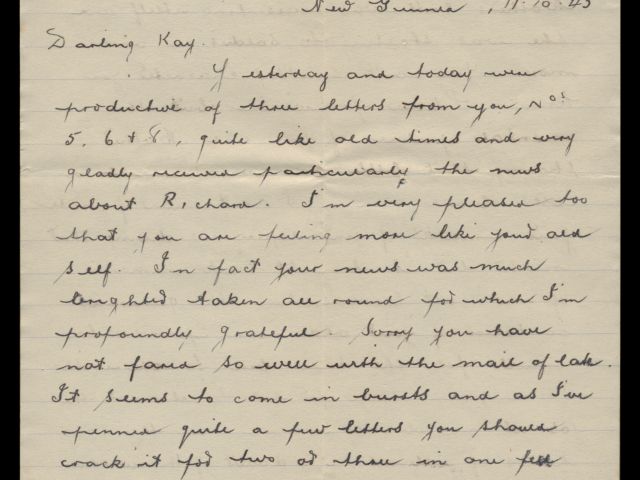 New Guinea, 11.10.43
Darling Kay.
Yesterday and today were
productive of three letters from you, Nos
5, 6 + 8, quite like old times and very
gladly received particularly the news
about Richard. I'm very pleased too
that you are feeling more like your old
self. In fact your news was much
brighter taken all round for which I'm
profoundly grateful. Sorry you have
not fared so well with the mail of late.
It seems to come in bursts and as I've
penned quite a few letters you should
crack it for two or three in one